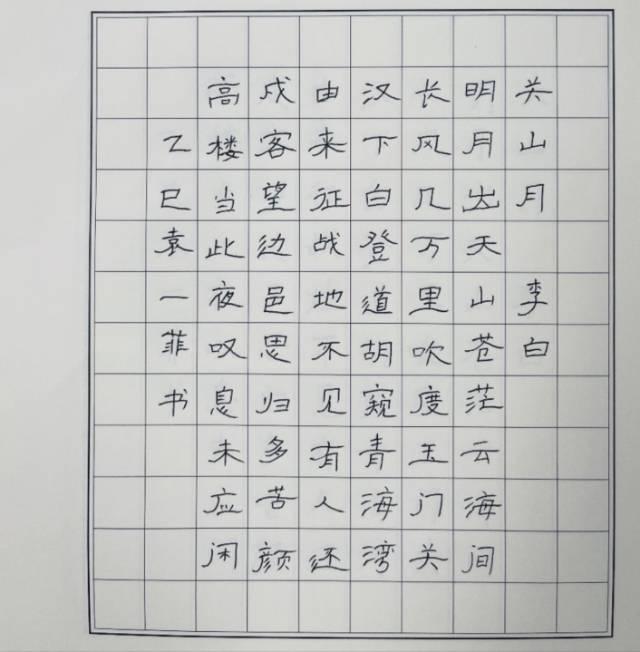 关山月 李白
明月出天山苍茫云海间
长风几万里吹度玉门关
汉下白登道胡窥青海湾
由来征战地不见有人还
戍客望边邑思归多苦颜
高楼当此夜叹息未应闲
乙巳袁一菲书